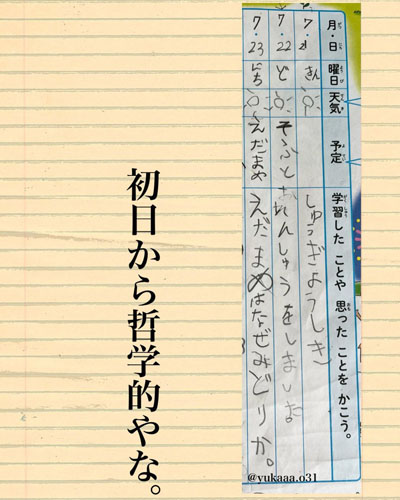 月・日 曜日 天気 予定 学習した ことや 思った ことを かこう。
7・21 きん しゅうぎようしき
7・22 ど そふと れんしゅうをしました
7・23 にち えだまめ えだまめはなぜみどりか。
初日から哲学的やな。
@yukaaa.o31